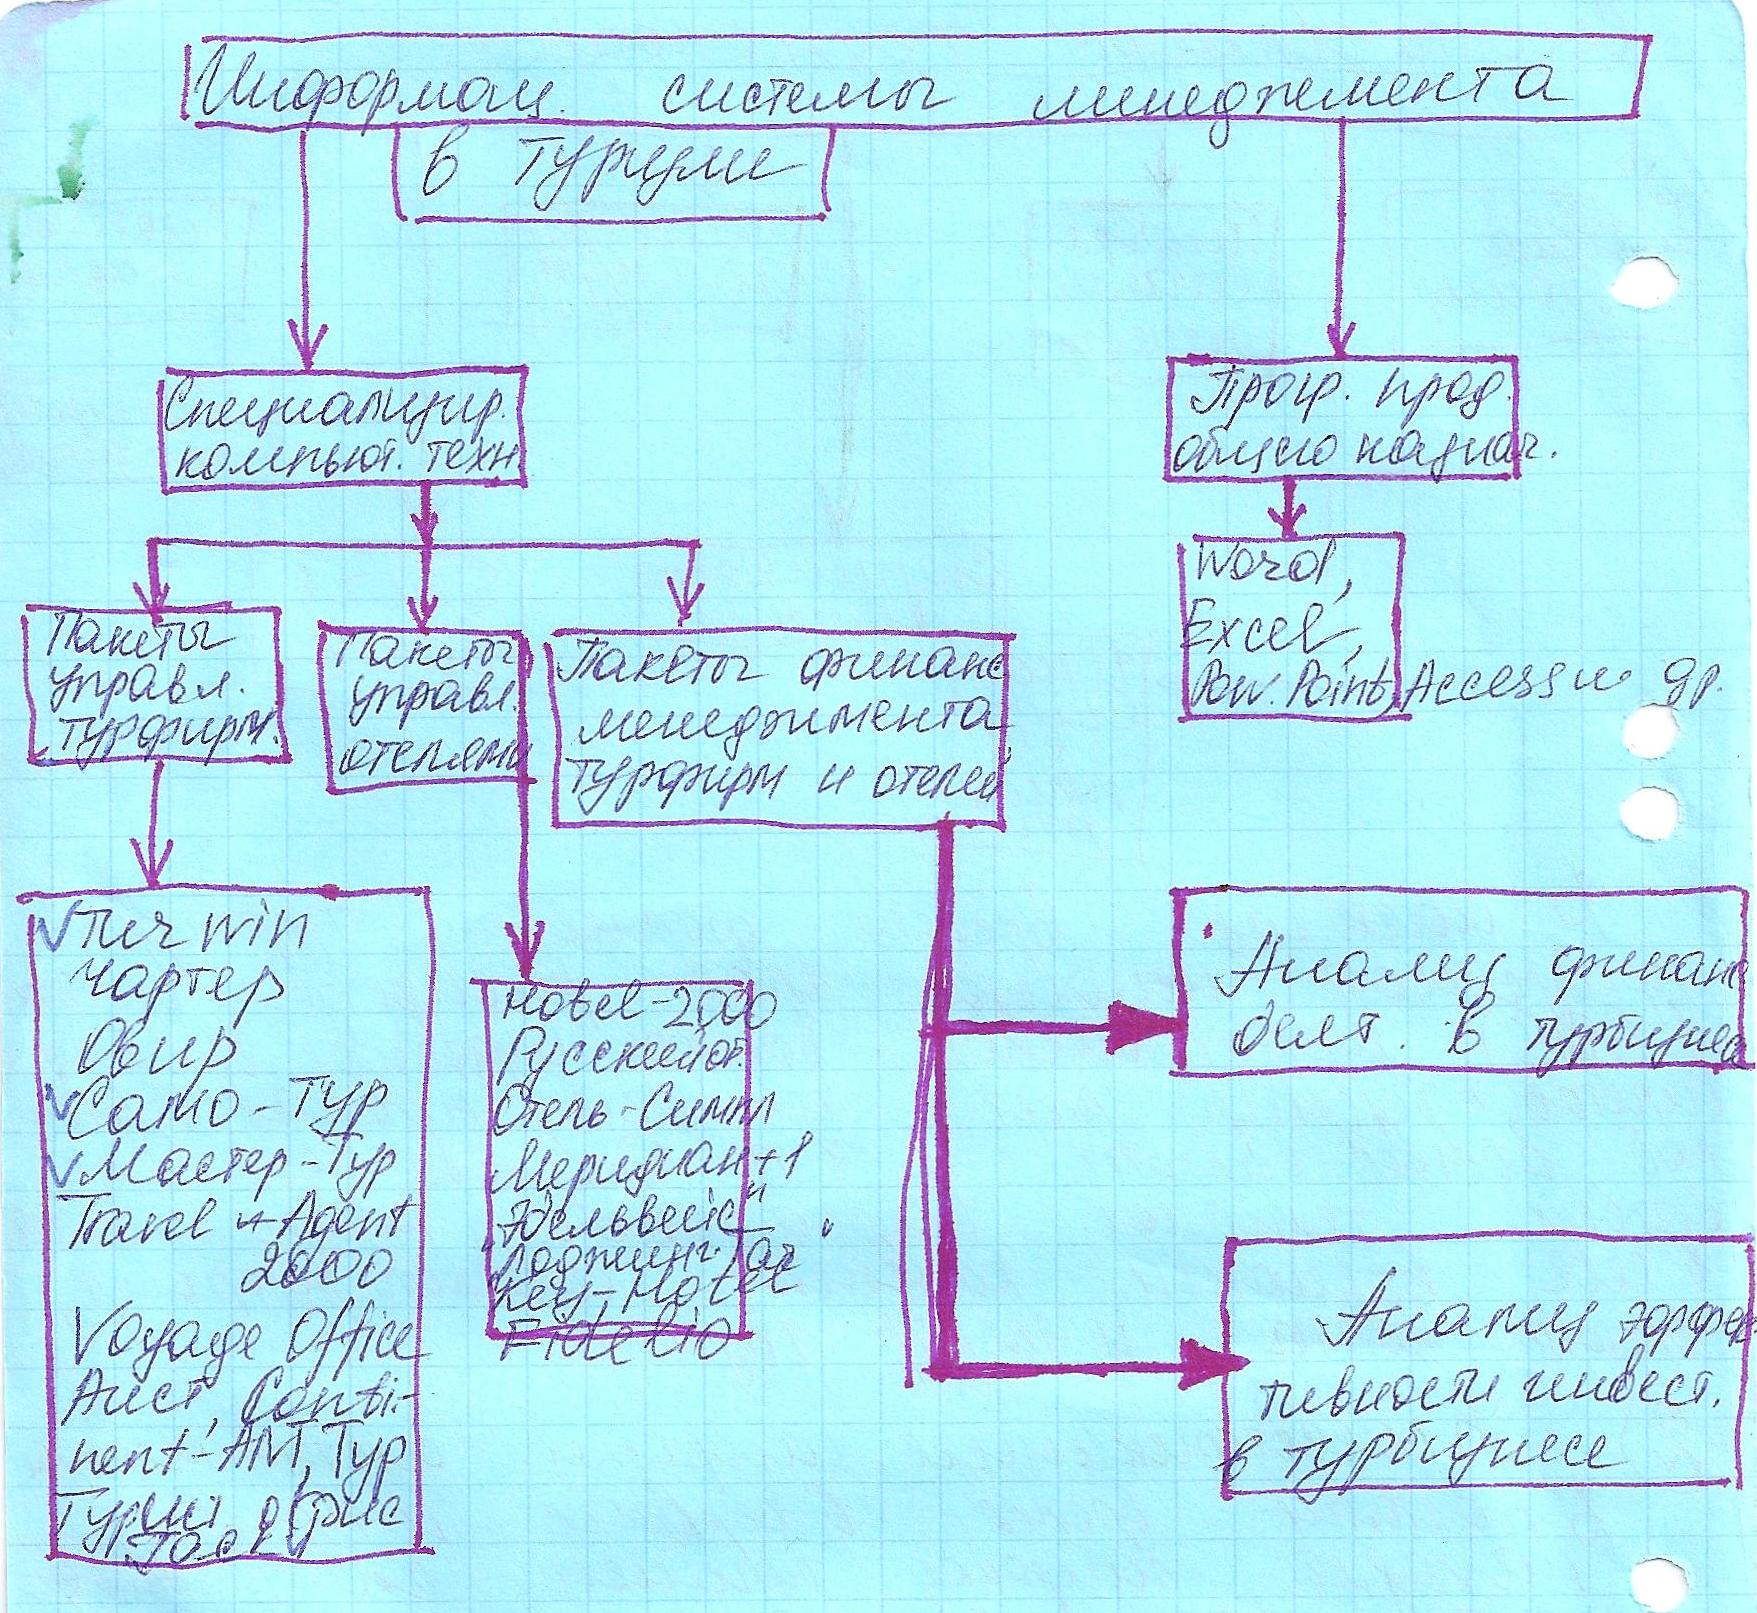 Информац. системы менеджмента
в туризме
Специализир.
компьют. техн.
Прогр. прод.
общего назнач.
Word,
Excel,
Pow. Point, Access и др.
Пакеты
управл.
турфирм.
Пакеты
управл.
отелями
Пакеты финанс
менеджмента
турфирм и отелей
win
Чартер
Овир
Само-Тур
Мастер-Тур
Travel Agent
2000
Voyage Office
Аист, Conti-
nent-AM, Тур
Турист офис
Hotel-2000
Русский от.
Отель-Симпл
Меридиан+1
"Эдельвейс"
Лоджинг
Key-Hotel
Fidelio
Анализ финанс
деят. в турбизнес
Анализ эффек
тивности инвест.
в турбизнесе